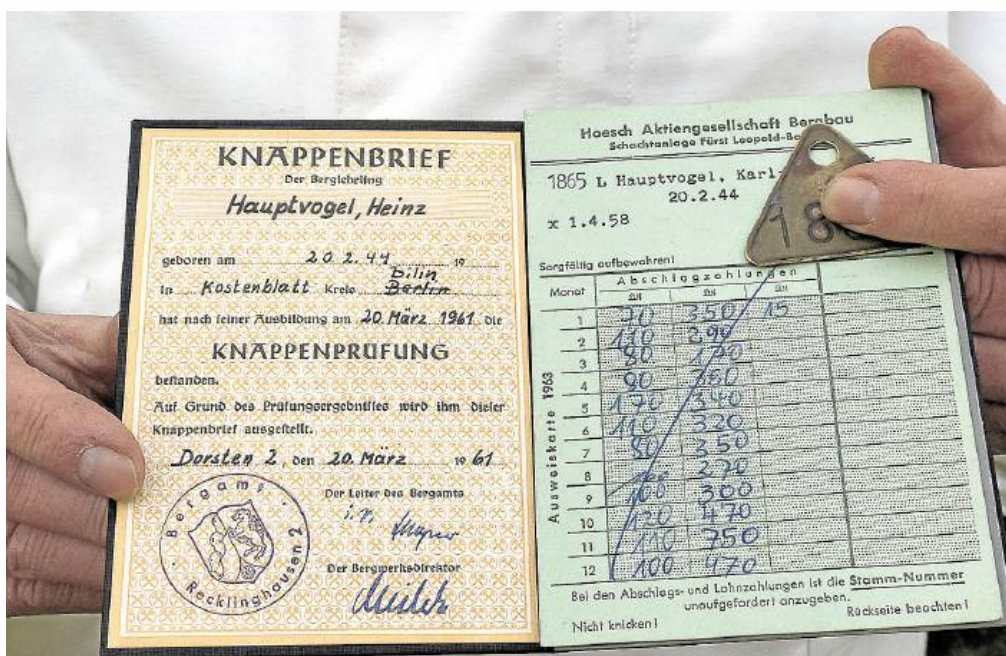 KNAPPENBRIEF
Der Berglehrling
Hauptvogel, Heinz
geboren am 20.2.44 19
Bilin
in Kostenblatt Kreis Berlin
hat nach seiner Ausbildung am 20. März 1961 die
KNAPPENPRÜFUNG
bestanden.
Auf Grund des Prüfungsergebnisses wird ihm dieser
Knappenbrief ausgestellt.
Dorsten 2, den 20. März 1961
Der Leiter des Bergamts
Der Bergwerksdirektor
Bergamt
Recklinghausen 2
Hoesch Aktiengesellschaft Bergbau
Schachtanlage Fürst Leopold-
1865 L Hauptvogel, Karl-
20.2.44
x 1.4.58
18
Sorgfältig aufbewahren!
Monat Abschlagzahlungen
DM DM DM
1 70 350 15
2 110 290
3 80
4 90 380
5 170 340
6 110 320
7 80 350
8 270
9 100 300
10 120 470
11 110 750
12 100 470
Ausweiskarte 1963
Bei den Abschlags- und Lohnzahlungen ist die Stamm-Nummer
unaufgefordert anzugeben.
Nicht knicken! Rückseite beachten!